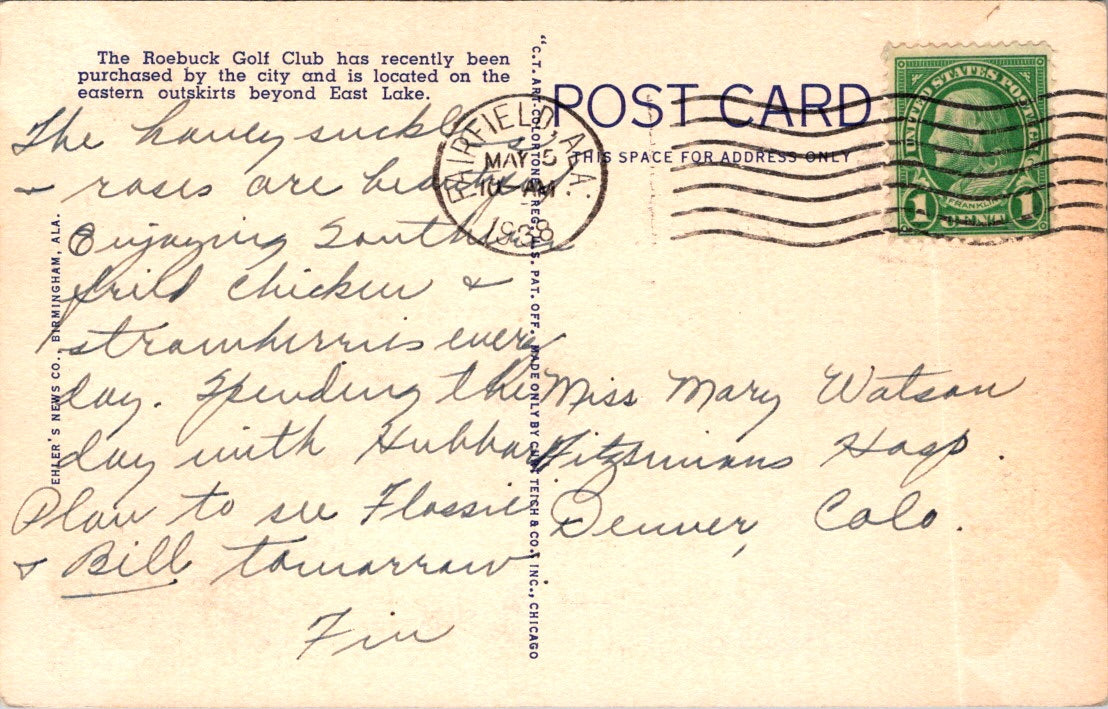 The Roebuck Golf Club has recently been
purchased by the city and is located on the
eastern outskirts beyond East Lake.
The honey suckle
+ roses are
Enjoying Southern
frild chicken +
strawberries every
day. Spending the
day with Hubbard
Plan to see Flossie
+ Bill tomorrow.
Fin
EHLER'S NEWS CO., BIRMINGHAM, ALA.
"C.T. ART-COLORTONE" REG. U.S. PAT. OFF. MADE ONLY BY CURT TEICH & CO., INC., CHICAGO
POST CARD
THIS SPACE FOR ADDRESS ONLY
FAIRFIELD, ALA.
MAY
10 AM
1938
UNITED STATES POSTAGE
FRANKLIN
1 CENT 1
Miss Mary Watson
Fitzsimans Hosp.
Denver, Colo.